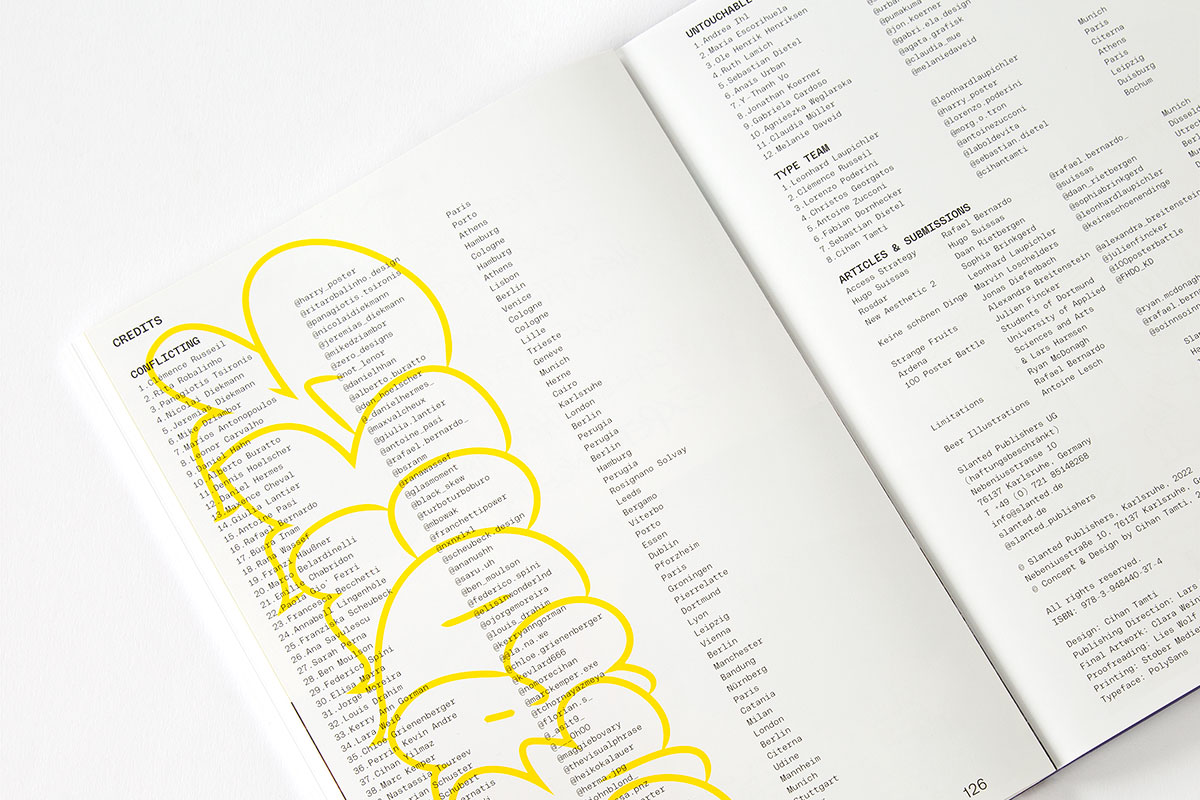 CREDITS
CONFLICTING
1.Clémence Russeil
2.Rita Robalinho
3.Panagiotis Tsironis
4.Nicolai Diekmann
5.Jeremias Diekmann
6.Mike Dziambor
7.Marios Antonopoulos
8.Leonor Carvalho
9.Daniel Hahn
10.Alberto Buratto
11.Dennis Hoelscher
12.Daniel Hermes
13.Maxence Cheval
14.Giulia Lantier
15.Antoine Pasi
16.Rafael Bernardo
17.Büsra Inam
18.Rana Wassef
19.Franzi Häußner
20.Marco Belardinelli
21.Emilie Chabridon
22.Paola Gio' Ferri
23.Francesca Becchetti
24.Annabell Lingenhöle
25.Franziska Scheubeck
26.Ana Savulescu
27.Sarah Perna
28.Ben Moulson
29.Federico Spini
30.Elisa Marra
31.Jorge Moreira
32.Louis Drahim
33.Kerry Ann Gorman
34.Lara Weiß
35.Chloé Grienenberger
36.Perrin Kevin Andre
37.Cihan Yilmaz
38.Marc Kemper
Nastassia Toureev
Schuster
Schubert
@harry_poster
@ritarobalinho.design
@panagiotis.tsironis
@nicolaidiekmann
@jeremias.diekmann
@mikedziambor
@zero_designs
@not_lenor
@danielhhan
@alberto.buratto
@den.hoelscher
@_danielhermes_
@maxvalcheux
@giulia.lantier
@antoine_pasi
@rafael.bernardo_
@bsranm
@ranawassef
@glasmoment
@black_skew
@turboturboburo
@mbowak
@franchettipower
@nxnxlxl
@scheubeck.design
@ananushh
@saru.uh
@ben_moulson
@federico.spini
@elisinwonderlnd
@ojorgemoreira
@louis.drahim
@kerryanngorman
@la.na.we
@chloe.grienenberger
@kevlard666
@nomorecihan
@martkemper.exe
@tchornayazmeya
@florian.s_
@maggiebovary
@thevisualphrase
@heikokalauer
@herma.jpg
Paris
Porto
Athens
Hamburg
Cologne
Hamburg
Athens
Lisbon
Berlin
Venice
Cologne
Lille
Trieste
Geneve
Munich
Herne
Cairo
Karlsruhe
London
Berlin
Perugia
Perugia
Berlin
Hamburg
Perugia
Rosignano Solvay
Leeds
Bergamo
Viterbo
Essen
Porto
Dublin
Pforzheim
Paris
Groningen
Pierrelatte
Dortmund
Lyon
Leipzig
Vienna
Berlin
Manchester
Bandung
Nürnberg
Paris
Catania
Milan
London
Berlin
Citerna
Udine
Mannheim
Munich
Stuttgart
126
UNTOUCHABLE
1.Andrea Ihl
2.Maria Escorihuela
3.Ole Henrik Henriksen
4.Ruth Lamich
5.Sebastian Dietel
6.Anaïs Urban
7.Y-Thanh Vo
8.Jonathan Koerner
9.Gabriela Cardoso
10.Agnieszka Węglarska
11.Claudia Müller
12.Melanie Daveid
@pumakuma
@jon.koerner
@gabri.ela.design
@agata.grafisk
@claudia_mue
@melaniedaveid
Munich
Paris
Citerna
Athens
Paris
Leipzig
Duisburg
Bochum
TYPE TEAM
1.Leonhard Laupichler
2.Clémence Russeil
3.Lorenzo Poderini
4.Christos Georgatos
5.Antoine Zucconi
6.Fabian Dornhecker
7.Sebastian Dietel
8.Cihan Tamti
@leonhardlaupichler
@harry_poster
@lorenzo.poderini
@morg.o.tron
@antoinezucconi
@laboldevita
@sebastian.dietel
@cihantamti
Munich
ARTICLES & SUBMISSIONS
Access Strategy
Hugo Suissas
Rosdar
New Aesthetic 2
Keine schönen Dinge
Strange Fruits
Ardena
100 Poster Battle
Limitations
Beer Illustrations
Rafael Bernardo
Hugo Suissas
Daan Rietbergen
Sophia Brinkgerd
Leonhard Laupichler
Marvin Loschelders
Jonas Diefenbach
Alexandra Breitenstein
Julien Fincker
Students of Dortmund
University of Applied
Sciences and Arts
& Lars Harmsen
Ryan McDonagh
Rafael Bernardo
Antoine Lesch
@rafael.bernardo_
@suissas
@daan_rietbergen
@sophiabrinkgerd
@leonhardlaupichler
@keineschoenendinge
@alexandra_breitenstein
@julienfincker
@100posterbattle
@FHDO_KD
Slanted Publishers UG
(haftungsbeschränkt)
Nebeniusstrasse 10
76137 Karlsruhe, Germany
T +49 (0) 721 85148268
info@slanted.de
slanted.de
@slanted_publishers
© Slanted Publishers, Karlsruhe, 2022
Nebeniusstraße 10, 76137 Karlsruhe,
© Concept & Design by Cihan Tamti
All rights reserved.
ISBN: 978-3-948440-37-4
Design: Cihan Tamti
Publishing Direction: Lars
Final Artwork: Clara Wein
Proofreading: Lies Wolf
Printing: Stober Medie
Typeface: PolySans